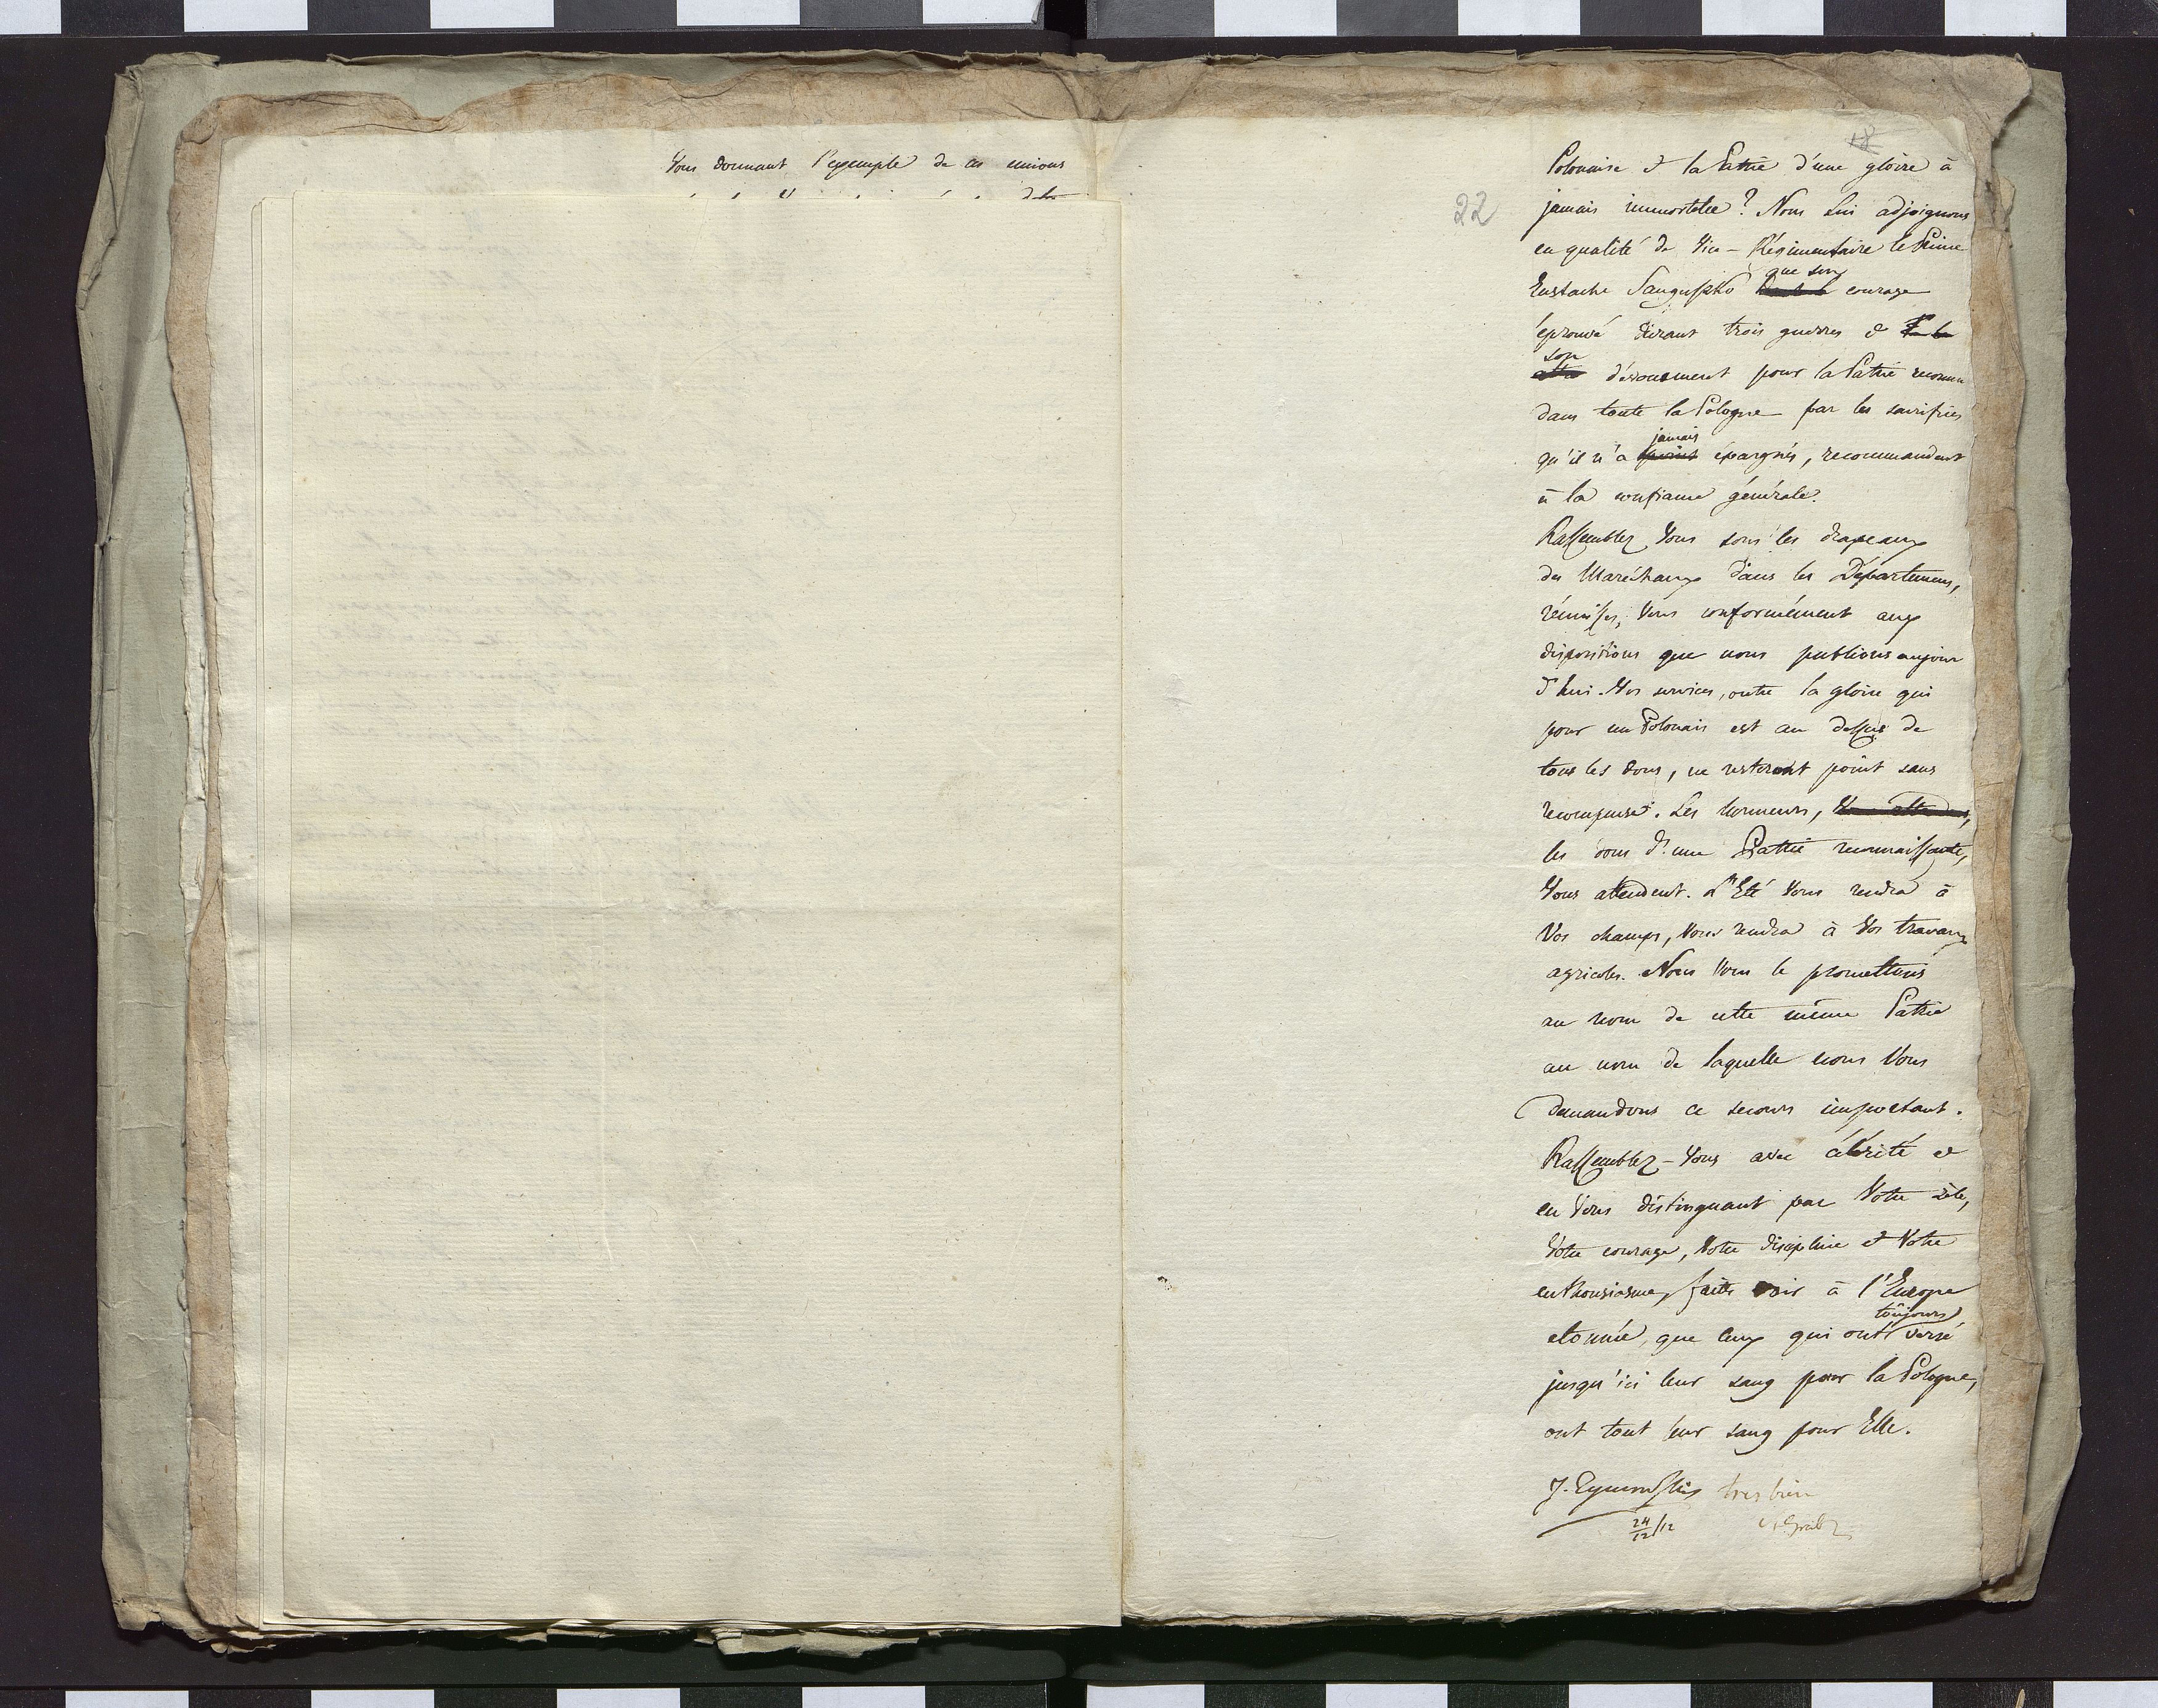 Vous donnant l'exemple de ces unions
18
22
Polonaise & la Patrie d'une gloire à
jamais immortelle? Nous lui adjoignons
en qualité de Vice-Régimentaire le Prince
Eustache Sangusko que son courage
éprouvé durant trois guerres &
son dévouement pour la Patrie reconnu
dans toute la Pologne par les sacrifices
qu'il n'a point jamais épargnés, recommandent
à la confiance générale.
Rassemblez Vous sous les drapeaux
des Maréchaux dans les Départemens,
réunissez, Vous conformément aux
dispositions que nous publions aujour
d'hui. Vos services, outre la gloire qui
pour un Polonais est au dessus de
tous les dons, ne resteront point sans
recompense. Les honneurs,
les dons d'une Patrie reconnaissante,
Vous attendent. L'Eté Vous rendra à
Vos champs, Vous rendra à Vos travaux
agricoles. Nous Vous le promettons
au nom de cette même Patrie
au nom de laquelle nous Vous
demandons ce secours important.
Rassemblez-Vous avec célérité &
en Vous distinguant par Votre zèle,
Votre courage, Votre discipline & Votre
enthousiasme, faites voir à l'Europe
etonnée, que ceux qui ont toujours versé
jusqu'ici leur sang pour la Pologne,
ont tout leur sang pour Elle.
très bien
24/12/12